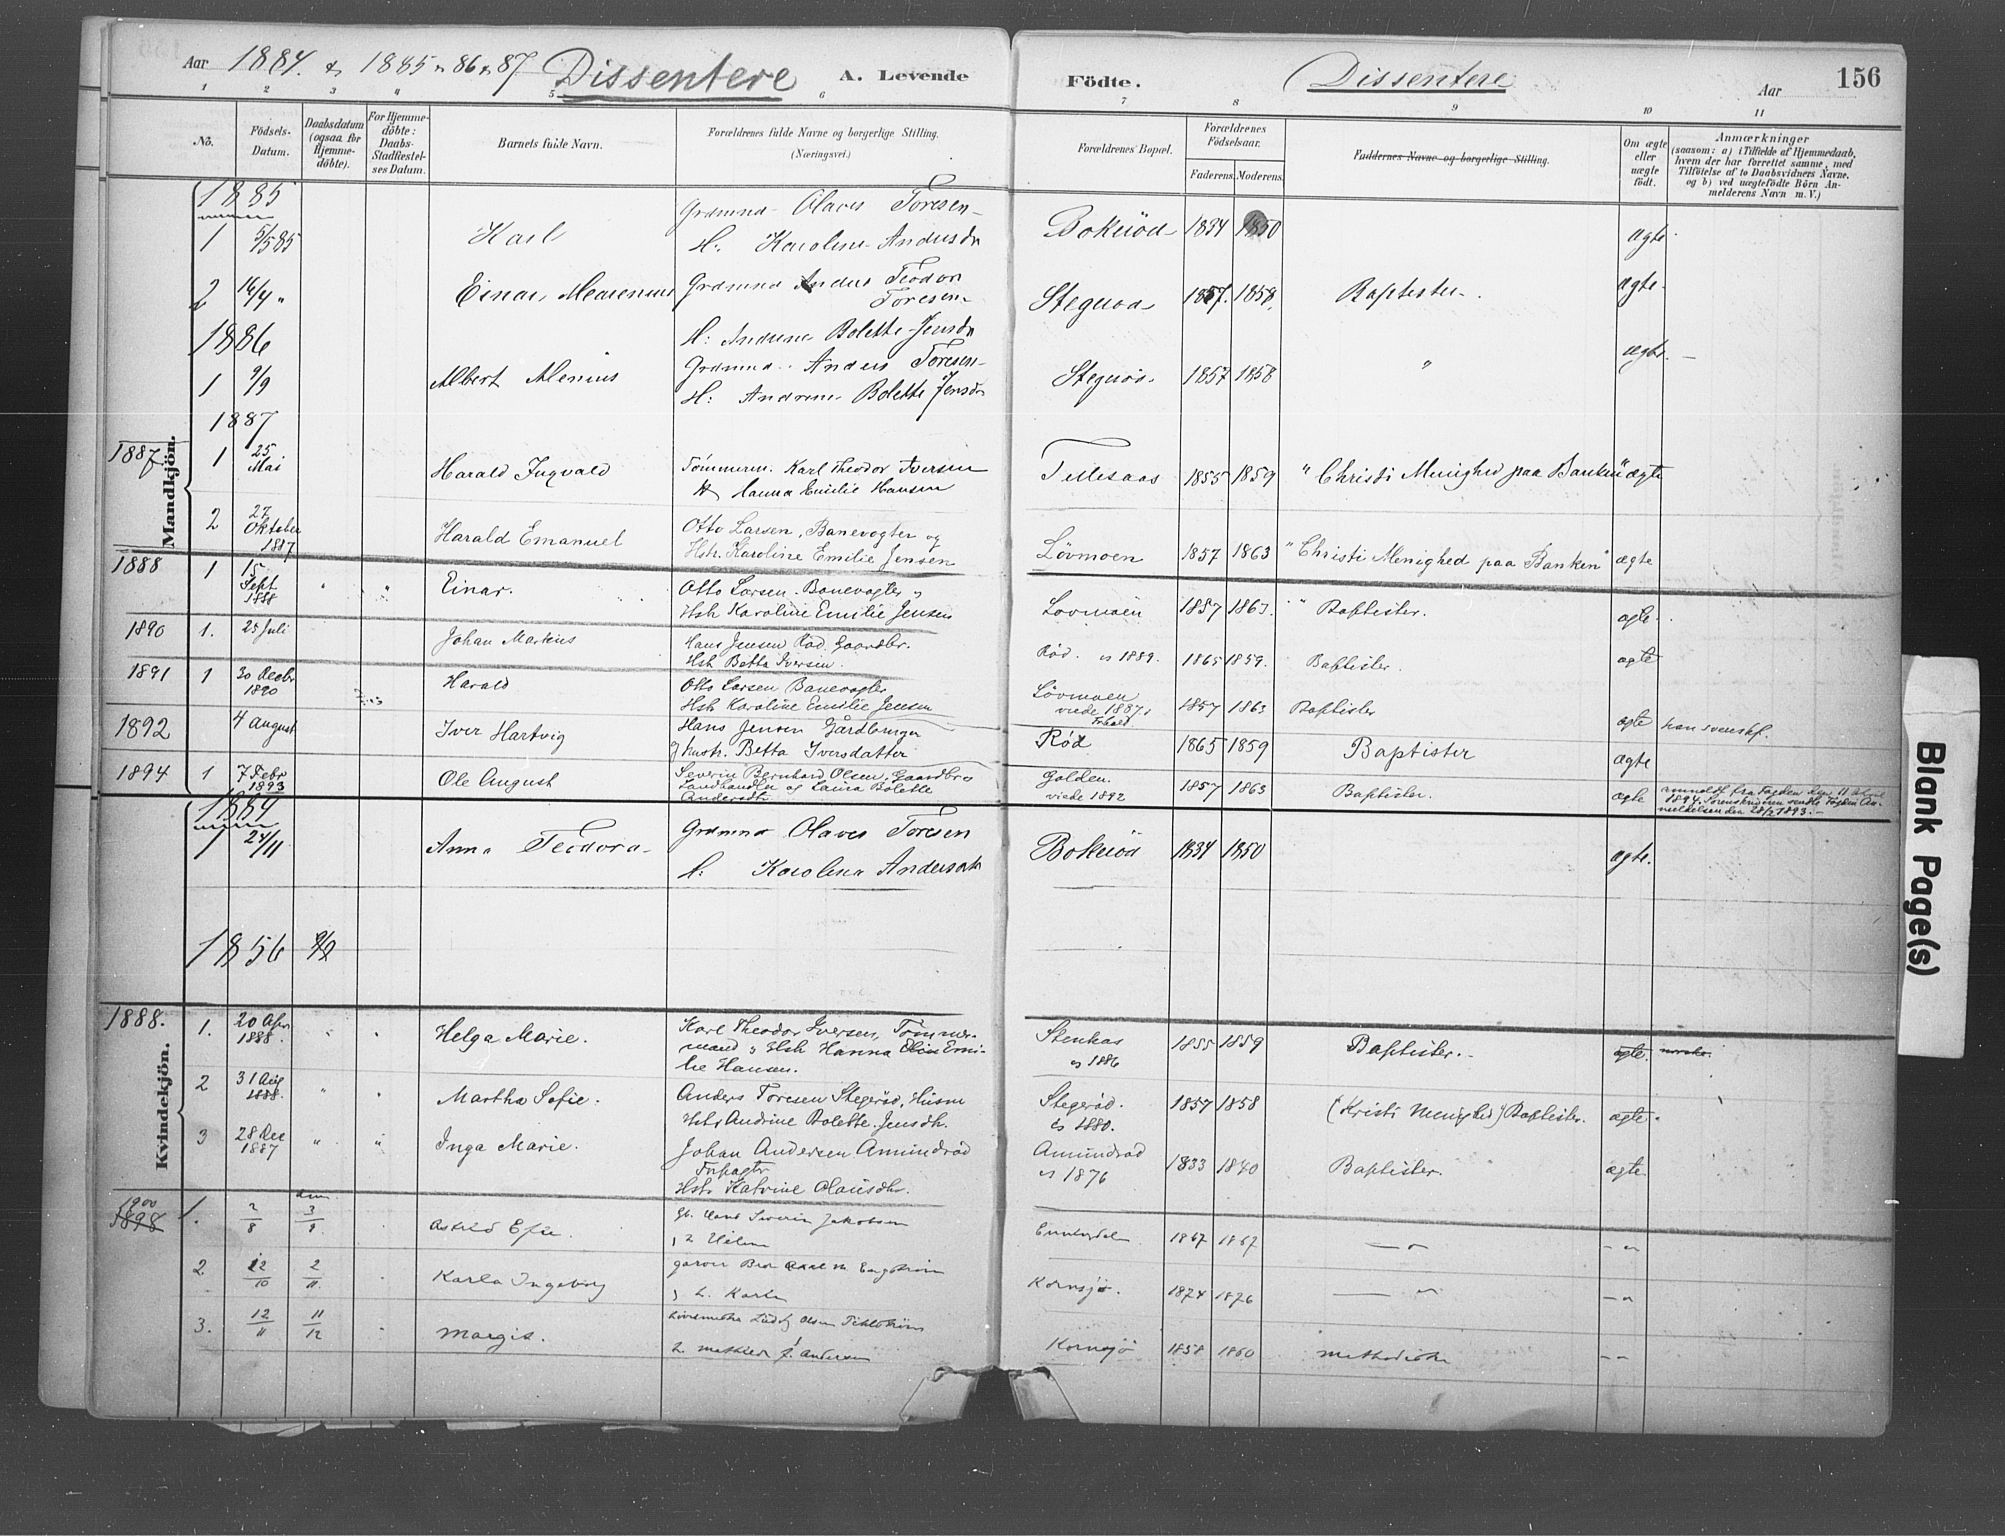 Aar 1884. & 1885 & 86 & 87 Dissentere A. Levende Födte. Dissentere Aar 156
1 2 3 4 5 6 7 8 9 10 11
No.
Födsels-Datum.
Daabsdatum (ogsaa for Hjemmedöbte).
For Hjemmedöbte: Daabs-Stadfæstelses Datum.
Barnets fulde Navn.
Forældrenes fulde Navne og borgerlige Stilling.
(Næringsvei.)
Forældrenes Bopæl.
Forældrenes Födselsaar.
Faderens. Moderens.
Faddernes Navne og borgerlige Stilling.
Om ægte eller uægte födt.
Anmærkninger
(saasom: a) i Tilfælde af Hjemmedaab,
hvem der har forrettet samme, med
Tilföielse af to Daabsvidners Navne.
og b) ved uægtefödte Börn An-
melderens Navn m. V.)
Mandkjön.
1885
1 5/5 85 Karl Grdmnd. Olaves Toresen H: Karoline Andersdr Bokeröd 1834 1850 ægte
2 16/4 " Einar Marenius Grdmnd Anders Teodor Toresen H: Andrine Bolette Jensdr Stegeröd 1857. 1858. Baptister. ægte.
1886
1 9/9 Albert Menius Grdmnd. Anders Toresen H: Andrine Bolette Jensdr Stegeröd. 1857 1858 " ægte.
1887
1887 1 25 Mai Harald Ingvald Tømmerm. Karl Theodor Iversen & Hanna Emilie Hansen Tillesaas 1855 1859 "Christi Menighed paa Banken" ægte
2 27 Oktober 1887 Harald Emanuel Otto Larsen, Banevogter og Hstr. Karoline Emilie Jensen Lövmoen 1857 1863 "Christi Menighed paa Banken" ægte
1888 1 15 Sept 1888 " " Einar. Otto Larsen. Banevogter & Hstr Karoline Emilie Jensen Lövmoen 1857 1863. Baptister. ægte.
1890 1. 25 Juli Johan Markus Hans Jensen Röd, Gaardbr. Hstr Betta Iversen. Röd. v 1889. 1865 1859. Baptister. ægte
1891 1 30 Decbr 1890 Harald Otto Larsen Banevogter Hstr Karoline Emilie Jensen Lövmoen viede 1887 1857 1863 Baptister ægte han svensk.
1892 4 August Iver Hartvig Hans Jensen Gårdbruger og Hustr. Betta Iversdatter Röd 1865 1859 Baptister ægte
1894 1 7 Febr 1893 Ole August Severin Bernhard Olsen, Gaardbr & Landhandler og Laura Bolette Andersdtr Golden. viede 1892 1857 1863 Baptister. ægte anmeldt fra Fogden den 11 April 1894. Sorenskriveren sendte Fogden Anmeldelsen den 28/2 1893.
Kvindekjön.
1884
1 24/11 Anna Teodora Grdmnd Olaves Toresen H: Karolina Andersdtr Bokeröd 1834 1850 ægte.
1856 9/2
1888. 1. 20 Apr. 1888. " " Helga Marie. Karl Theodor Iversen, Tömmer-
mand & Hstr Hanna Emi-
lie Hansen. Stenkas v 1886 1855 1859 Baptister. ægte. norske.
2 31 Aug 1888. " " Martha Sofie. Anders Toresen Stegeröd, Husm Hstr Andrine Bolette Jensdtr. Stegeröd. v 1880. 1857 1858 (Kristi Menighed) Baptister. ægte.
3 28 Dec 1887 " " Inga Marie. Johan Andersen Amundröd Hstr Katrine Olausdtr. Amundröd v 1876 1833 1840 Baptister. ægte.
1900 1898 1. 2/8 3/9 Astrid Gb. Hans Severin Jakobsen 1867 1867
2. 12/10 2/11 Karla Ingeborg Kornsjø. 1874 1876
3. 12/11 11/12 Margit. Kornsjø 1858 1860 methodister
Blank Page(s)